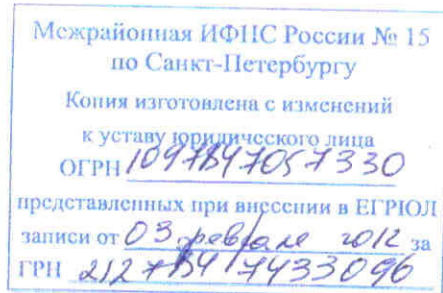 Межрайонная ИФНС России № 15
по Санкт-Петербургу
Копия изготовлена с изменений
к уставу юридического лица
ОГРН 1097847057330
представленных при внесении в ЕГРЮЛ
записи от 03 февраля 2012 за
ГРН 2127847433096